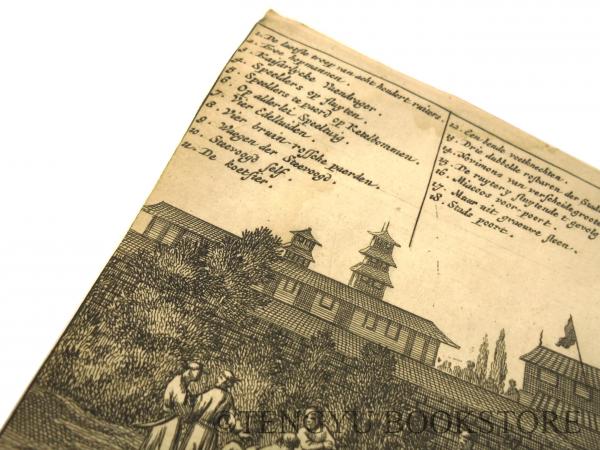 1. De laetste troep van acht hondert ruiters.
2. Twee heymannen.
3. Kaisarlycke Vaendrager.
4. Speelders op fluyten.
5. Speelders te poerd op Ketelbommen.
6. Op alderlei Speeltuig.
7. Vier Edelluiden.
8. Vier bruin-rossche paerden.
9. Waagen des Steevoogd.
10. Steevoogd self.
11. De koetsier.
12. Een bende voetknechten.
Drie dubbelde rosbaren des
14. Norimons van verscheide groote
15. De ruytery sluytende t gevolg
16. Miacoos voor-poort.
17. Muur uit graeuwe steen.
18. Stads poort.
©TENGYU BOOKSTORE